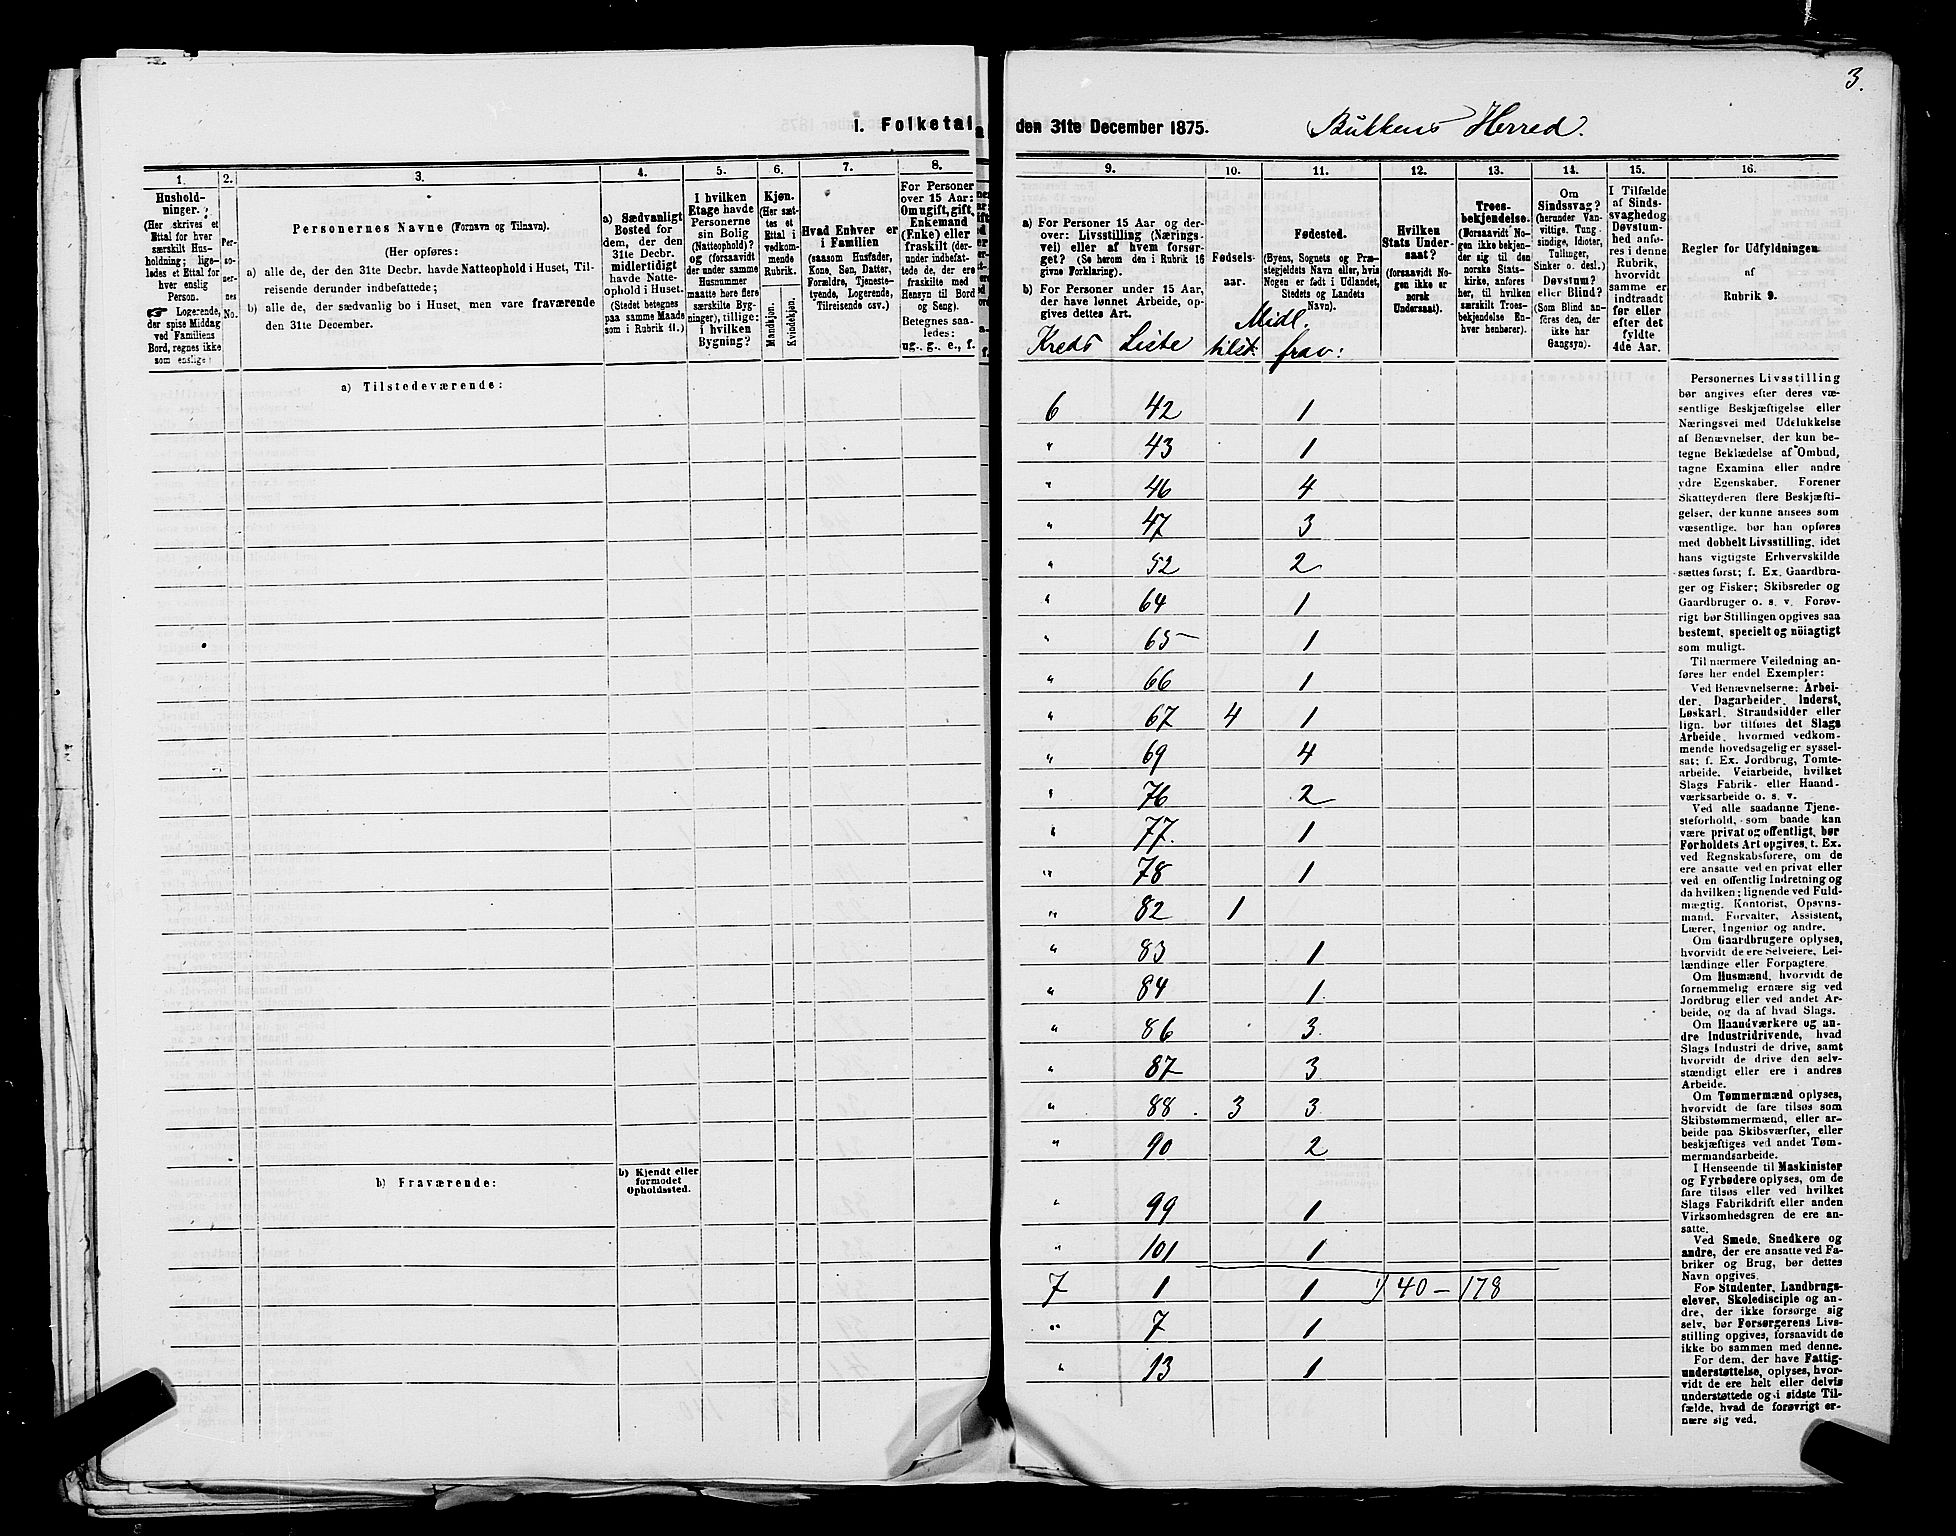 3.
1. Folketal
den 31te December 1875.
Bukkens Herred.
1.
Hushold-
ninger.
(Her skrives et
Ettal for hver
særskilt Hus-
holdning; lige-
ledes et Ettal for
hver enslig
Person.
☛ Logerende,
der spise Middag
ved Familiens
Bord, regnes ikke
som enslige)
2.
Per-
so-
ner-
nes
No.
3.
Personernes Navne (Fornavn og Tilnavn).
(Her opføres:
a) alle de, der den 31te Decbr. havde Natteophold i Huset, Til-
reisende derunder indbefattede;
b) alle de, der sædvanlig bo i Huset, men vare fraværende
den 31te December.
4.
a) Sædvanligt
Bosted for
dem, der den
31te Decbr.
midlertidigt
havde Natte-
ophold i Huset.
(Stedet betegnes
paa samme Maade
som i Rubrik 11.)
5.
I hvilken
Etage havde
Personerne
sin Bolig
(Natteophold)?
og (forsaavidt
der under samme
Husnummer
maatte høre flere
særskilte Byg-
ninger), tillige:
i hvilken
Bygning?
6.
Kjøn.
(Her sæt-
tes et
Ettal i
vedkom-
mende
Rubrik.
Mandkjøn.
Kvindekjøn.
7.
Hvad Enhver er
i Familien
(saasom Husfader,
Kone, Søn, Datter,
Forældre, Tjeneste-
tyende, Logerende,
Tilreisende osv.)
8.
For Personer
over 15 Aar:
Om ugift, gift,
Enkemand
(Enke) eller
fraskilt (der-
under indbefat-
tede de, der ere
fraskilte med
Hensyn til Bord
og Seng).
Betegnes saa-
ledes:
ug., g., e., f.
9.
a) For Personer 15 Aar og der-
over: Livsstilling (Nærings-
vei) eller af hvem forsør-
get? (Se herom den i Rubrik 16
givne Forklaring.)
b) For Personer under 15 Aar,
der have lønnet Arbeide, op-
gives dettes Art.
10.
Fødsels-
aar.
11.
Fødested.
(Byens, Sognets og Præ-
stegjeldets Navn eller, hvis
Nogen er født i Udlandet,
Stedets og Landets
Navn).
12.
Hvilken
Stats Under-
saat?
(forsaavidt No-
gen ikke er
norsk
Undersaat).
13.
Troes-
bekjendelse.
(Forsaavidt No-
gen ikke bekjen-
der sig til den
norske Stats-
kirke, anføres
her, til hvilken
særskilt Troes-
bekjendelse En-
hver henhører).
14.
Om
Sindssvag?
(herunder Van-
vittige, Tung-
sindige, Idioter,
Tullinger,
Sinker o. desl.)
Døvstum?
eller Blind?
(Som Blind an-
føres den, der
ikke har
Gangsyn).
15.
I Tilfælde
af Sinds-
svaghed og
Døvstum-
hed anfø-
res i denne
Rubrik,
hvorvidt
samme er
indtraadt
før eller
efter det
fyldte
4de Aar.
16.
Regler for Udfyldningen
af
Rubrik 9.
Midl.
Kreds Liste tilst. frav:
a) Tilstedeværende:
6 42 1
" 43 1
" 46 4
" 47 3
" 52 2
" 64 1
" 65 1
" 66 1
" 67 4 1
" 69 4
" 76 2
" 77. 1
" 78 1
" 82 1
" 83 1
" 84 1
" 86 3.
" 87 3
" 88 3 3
" 90 2
b) Fraværende:
b) Kjendt eller
formodet
Opholdssted.
" 99 1
" 101 1
7 1 1 40 – 178
" 7 1
" 13 1
Personernes Livsstilling
bør angives efter deres væ-
sentlige Beskjæftigelse eller
Næringsvei med Udelukkelse
af Benævnelser, der kun be-
tegne Beklædelse af Ombud,
tagne Examina eller andre
ydre Egenskaber. Forener
Skatteyderen flere Beskjæfti-
gelser, der kunne ansees som
væsentlige, bør han opføres
med dobbelt Livsstilling, idet
hans vigtigste Erhvervskilde
sættes først; f. Ex. Gaardbru-
ger og Fisker; Skibsreder og
Gaardbruger o. s. v. Forøv-
rigt bør Stillingen opgives saa
bestemt, specielt og nöiagtigt
som muligt.
Til nærmere Veiledning an-
føres her endel Exempler:
Ved Benævnelserne: Arbei-
der, Dagarbeider, Inderst,
Løskarl, Strandsidder eller
lign. bør tilføies det Slags
Arbeide, hvormed vedkom-
mende hovedsagelig er syssel-
sat; f. Ex. Jordbrug, Tomte-
arbeide, Veiarbeide, hvilket
Slags Fabrik- eller Haand-
værksarbeide o. s. v.
Ved alle saadanne Tjene-
steforhold, som baade kan
være privat og offentligt, bør
Forholdets Art opgives, t. Ex.
ved Regnskabsførere, om de
ere ansatte ved en privat eller
ved en offentlig Indretning og
da hvilken; lignende ved Fuld-
mægtig, Kontorist, Opsyns-
mand, Forvalter, Assistent,
Lærer, Ingeniør og andre.
Om Gaardbrugere oplyses,
hvorvidt de ere Selveiere, Lei-
lændinge eller Forpagtere.
Om Husmænd, hvorvidt de
fornemmelig ernære sig ved
Jordbrug eller ved andet Ar-
beide, og da af hvad Slags.
Om Haandværkere og an-
dre Industridrivende, hvad
Slags Industri de drive, samt
hvorvidt de drive den selv-
stændigt eller ere i andres
Arbeide.
Om Tømmermænd oplyses,
hvorvidt de fare tilsøs som
Skibstømmermænd, eller ar-
beide paa Skibsværfter, eller
beskjæftiges ved andet Tøm-
mermandsarbeide.
I Henseende til Maskinister
og Fyrbødere oplyses, om de
fare tilsøs eller ved hvilket
Slags Fabrikdrift eller anden
Virksomhedsgren de ere an-
satte.
Ved Smede, Snedkere og
andre, der ere ansatte ved Fa-
briker og Brug, bør dettes
Navn opgives.
For Studenter, Landbrugs-
elever, Skoledisciple og an-
dre, der ikke forsørge sig
selv, bør Forsørgerens Livs-
stilling opgives, forsaavidt de
ikke bo sammen med denne.
For dem, der have Fattig-
understøttelse, oplyses, hvor-
vidt de ere helt eller delvis
understøttede og i sidste Til-
fælde, hvad de forøvrigt er-
nære sig ved.